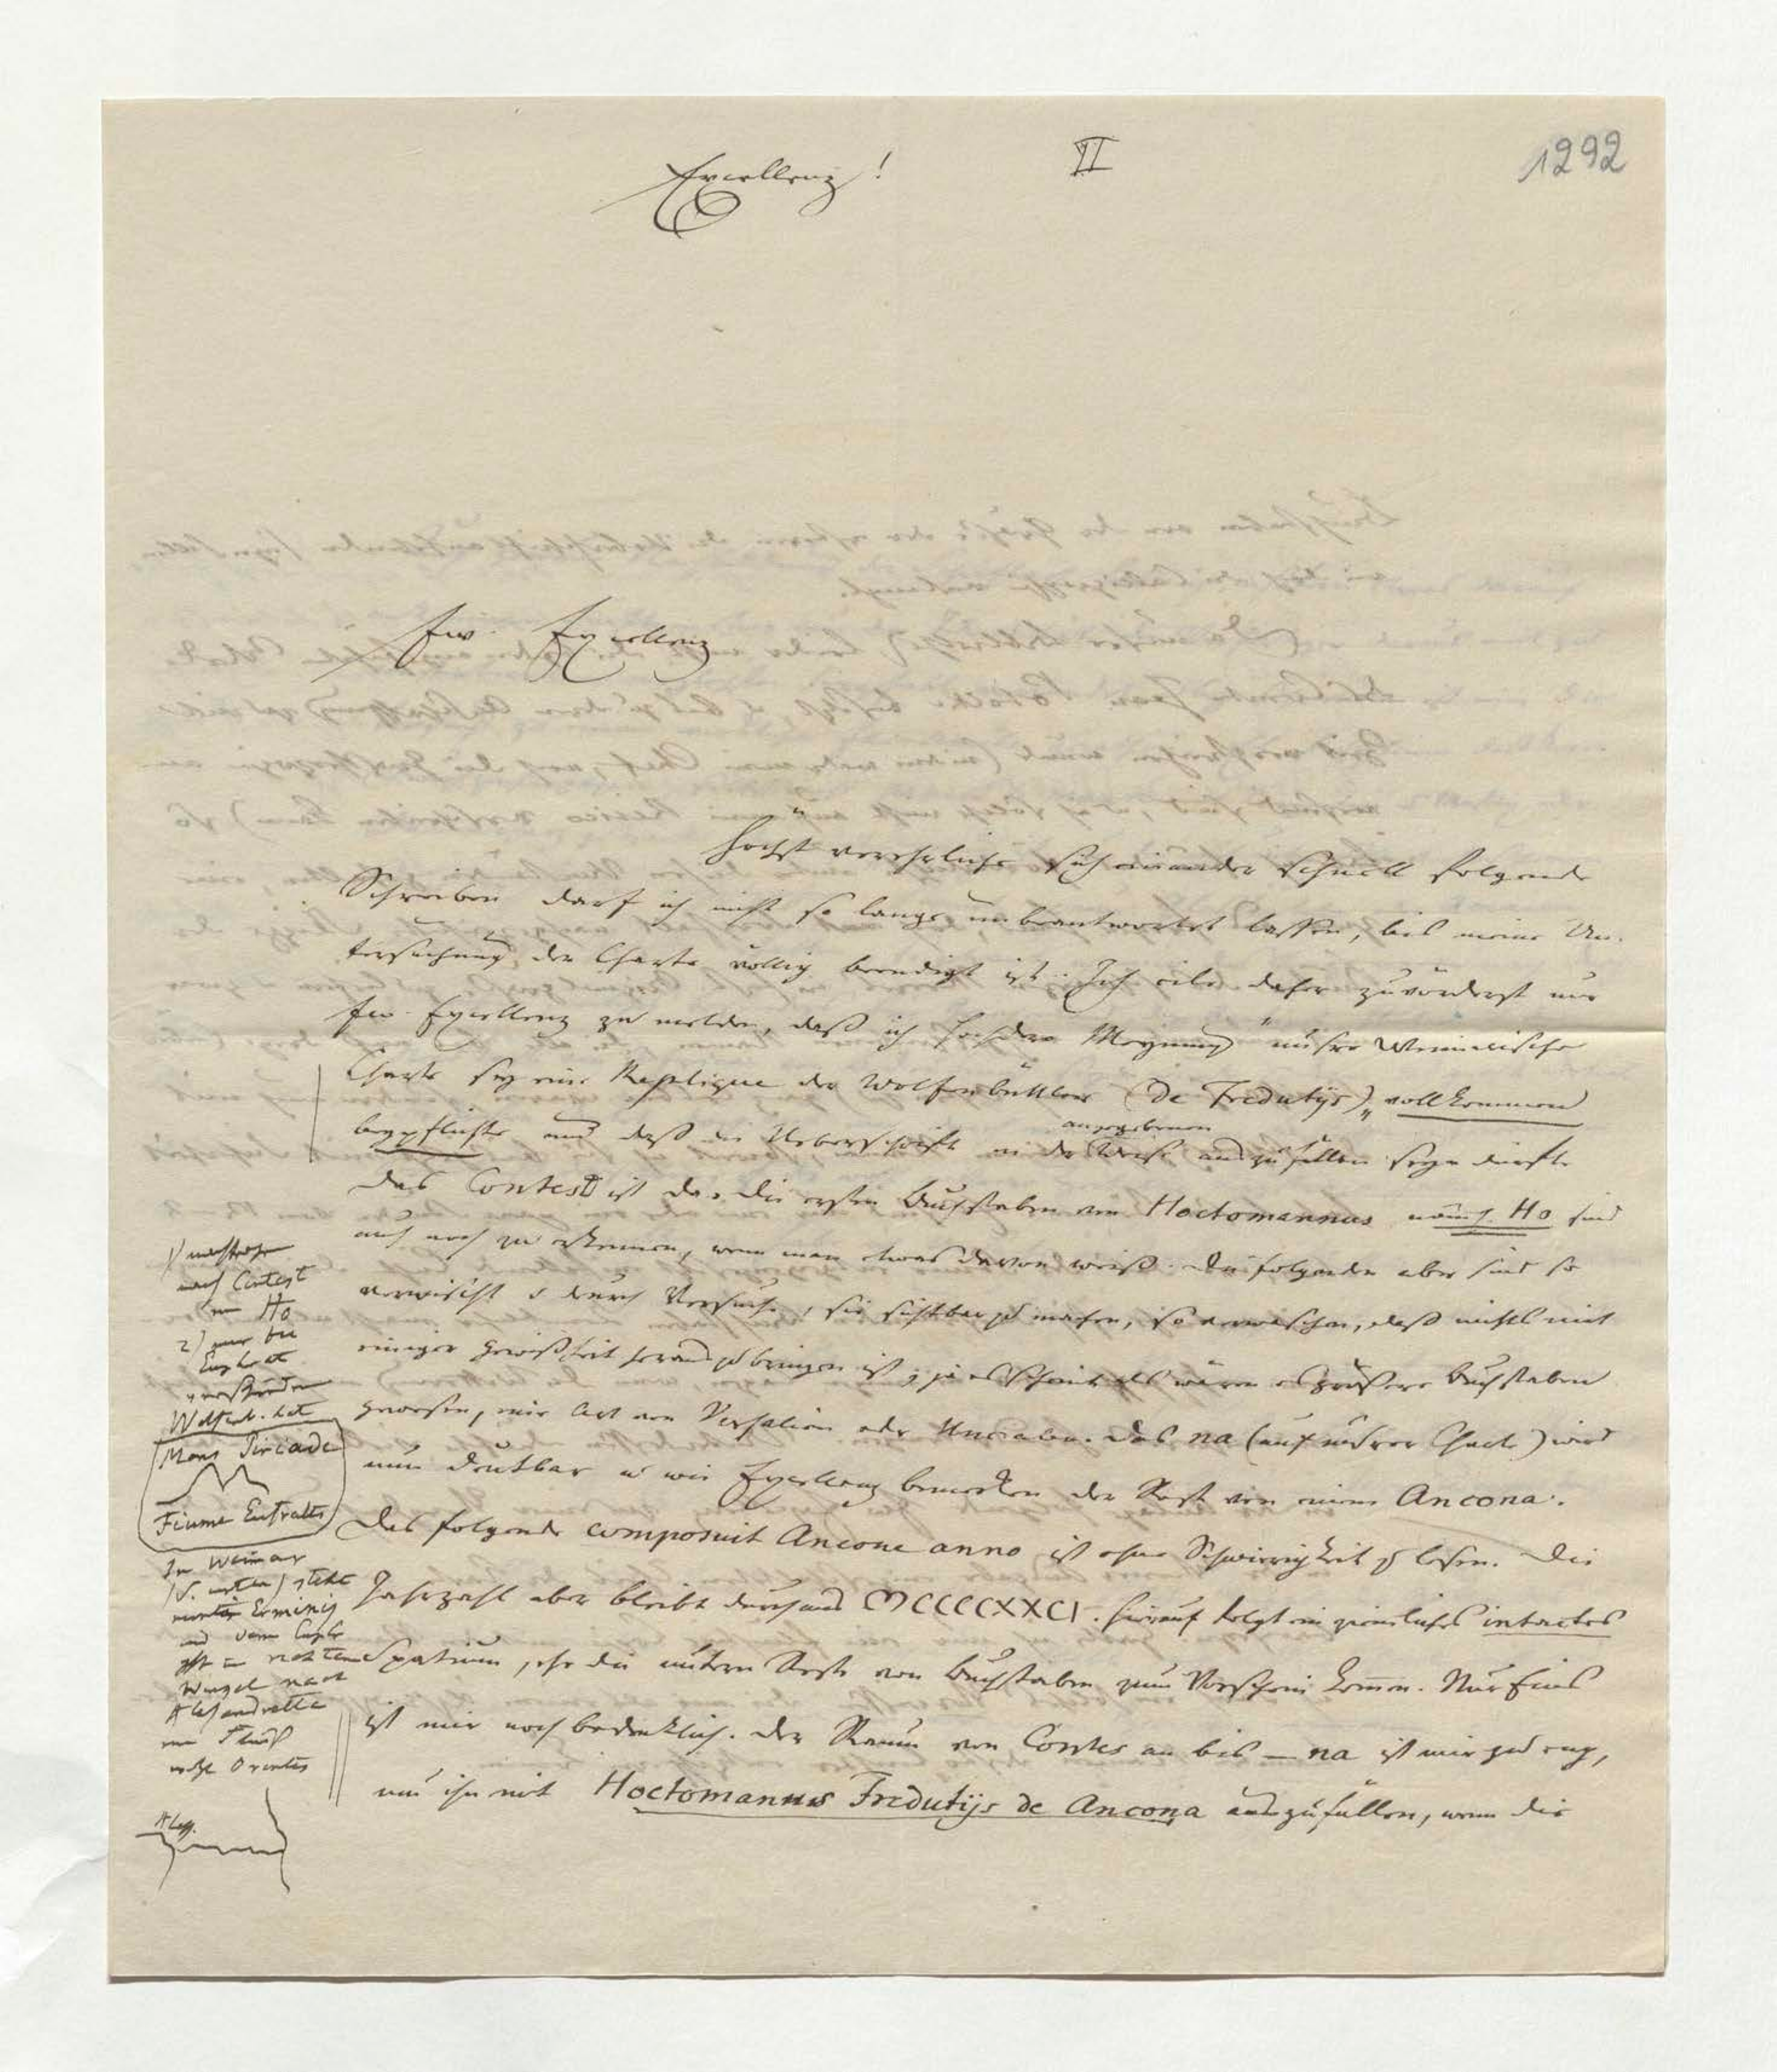 Excellenz!
II
1292
Ew. Excellenz
Höchst verehrliche sich einander schnell folgende
Schreiben darf ich nicht so lange unbeantwortet lassen, bis meine Un-
tersuchung der Charte völlig beendigt ist. Ich eile daher zuvörderst nur
Ew. Excellenz zu melden, daß ich Hochdero Meynung "unsre Weimarische
Charte sey eine Replique der Wolfenbüttler (de Fredutijs)" vollkommen
beypflichte und daß die Ueberschrift in der Weise auszufüllen seyn dürfte
angegebenen
das Contes ist da. die ersten Buchstaben von Hoctomannus nämlich Ho sind
auch noch zu erkennen, wenn man etwas davon weiß. Die folgenden aber sind so
verwischt u durch Versuche, sie sichtbar zu machen, so verwaschen, daß nichts mit
einiger Gewißheit herauszubringen ist; ja es scheint als wären es größere Buchstaben
gewesen, eine Art von Versalien oder Uncialen. Das na (auf unsrer Charte) wird
nun deutbar u wie Excellenz bemerken der Rest von einem Ancona.
Das folgende composuit Ancone anno ist ohne Schwierigkeit zu lesen. Die
Jahrzahl aber bleibt durchaus MCCCCXXCI. Hierauf folgt ein ziemliches intactes
Spatium, ehe die untern Reste von Buchstaben zum Vorschein kommen. Nur Eins
ist mir noch bedenklich. Der Raum von Contes an bis – na ist mir zu eng,
um ihn mit Hoctomannus Fredutijs de Ancona auszufüllen, wenn die
1)
nach Contest
ein Ho
2) nur bei
Euphrat
Wolfenb. hat
Mons Piriade
Fiume Eufrattes
In Weimar
steht
Erminig
und dann
in rothem
Winzel nach
Alessandretta
ein Fluß
Orontes
Aless.